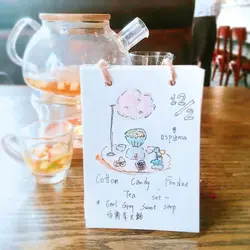 12/2
espuma
Cotton Candy Fondue
Tea set
* Earl Grey Sweet soup
伯爵茶太妃